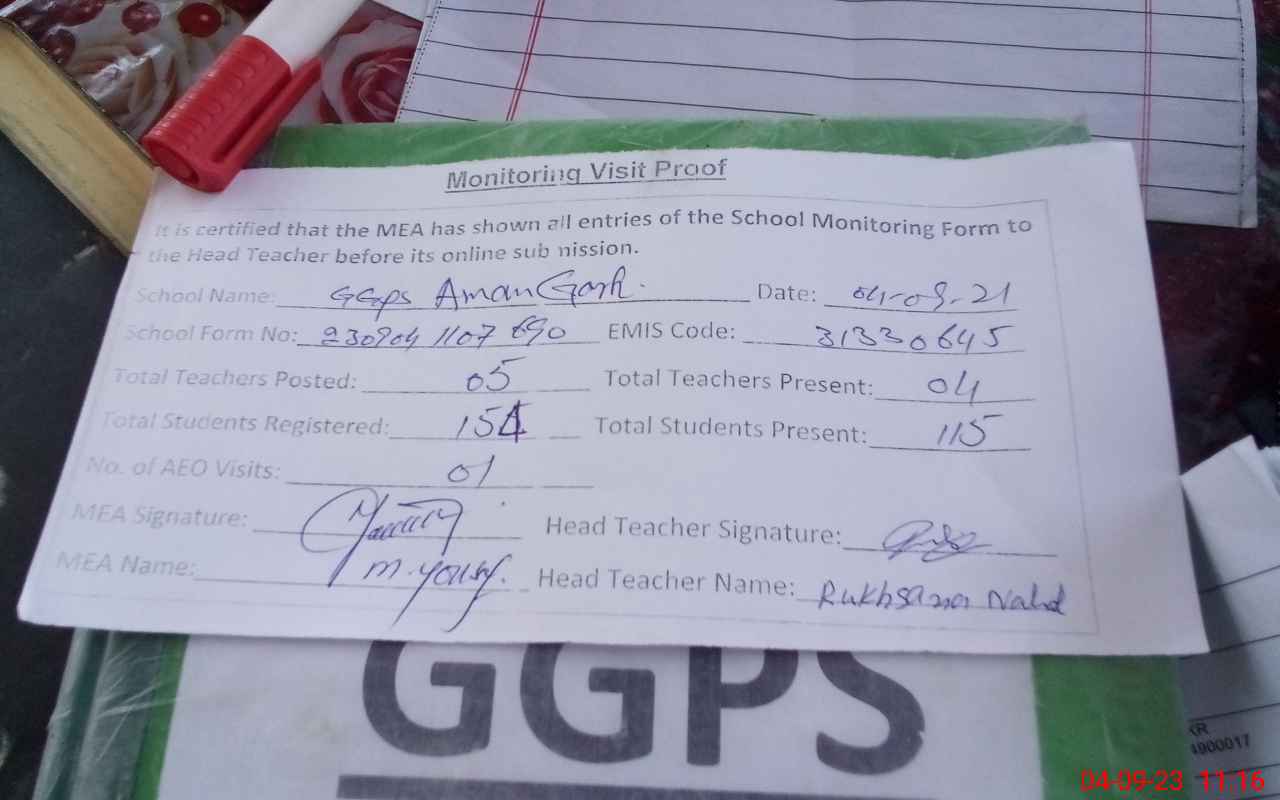 Monitoring Visit Proof
It is certified that the MEA has shown all entries of the School Monitoring Form to
the Head Teacher before its online submission.
School Name: GGPS Aman Garh. Date: 04-09-21
School Form No: 230904 1107 690 EMIS Code: 31330645
Total Teachers Posted: 05 Total Teachers Present: 04
Total Students Registered: 154 Total Students Present: 115
No. of AEO Visits: 01
MEA Signature: Head Teacher Signature:
MEA Name: M. Yousf. Head Teacher Name: Rukhsana
GGPS
KR
4900017
04-09-23 11:16